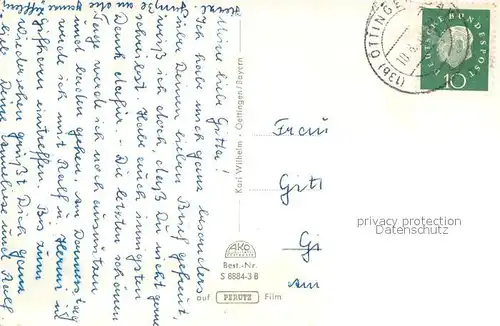 Meine liebe Gitta!
Ich habe mich ganz besonders
über Deinen lieben Brief gefreut,
weiß ich doch, daß Du nicht gerne
schreibst. Habe auch innigsten
Dank dafür. - Die letzten schönen
Tage werde ich noch ausnützen
und baden gehen. Am Donnerstag
werde ich mit Ralf u.
Gifhorn eintreffen. Bis zum
Wiedersehen grüßt Dich ganz
lieb Deine Anneliese und Ralf.
Karl Wilhelm - Oettingen/Bayern
AKO
Best.-Nr.
S 8884-3 B
auf PERUTZ Film
Frau
Gitt
Gi
Am
(13b) OTTINGE
10.8.
DEUTSCHE BUNDESPOST
10
privacy protection
Datenschutz